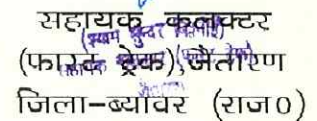 सहायक कलक्टर
(श्याम सुन्दर
(फास्ट ट्रेक),जैतारण
जिला-ब्यावर (राज0)